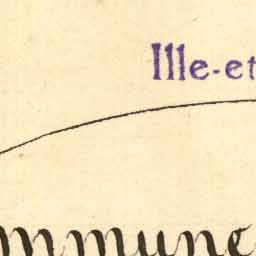 Ille-et
mmune